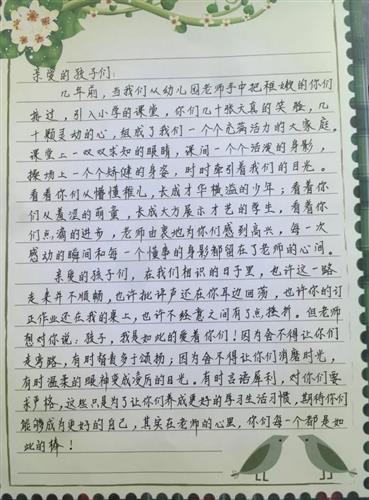 亲爱的孩子们：
几年前，当我们从幼儿园老师手中把稚嫩的你们
接过，引入小学的课堂，你们几十张天真的笑脸，几
十颗灵动的心，组成了我们一个个充满活力的大家庭。
课堂上一双双求知的眼睛，课间一个个活泼的身影，
操场上一个个矫健的身姿，时时牵引着我们的目光。
看着你们从懵懂稚儿，长成才华横溢的少年；看着你
们从羞涩的萌童，长成大方展示才艺的学生，看着你
们点滴的进步，老师由衷地为你们感到高兴，每一次
感动的瞬间和每一个懂事的身影都留在了老师的心间。
亲爱的孩子们，在我们相识的日子里，也许这一路
走来并不顺畅，也许批评声还在你耳边回荡，也许你的订
正作业还在我的桌上，也许不经意之间有了点挫折。但老师
想对你说：孩子，我是如此的爱着你们！因为舍不得让你们
走弯路，有时督责多于颂扬；因为舍不得让你们消磨时光，
有时温柔的眼神变成凌厉的目光。有时言语犀利，对你们要
求严格，这些只是为了让你们养成更好的学习生活习惯，期待你们
能够成为更好的自己，其实在老师的心里，你们每一个都是如
此的棒！